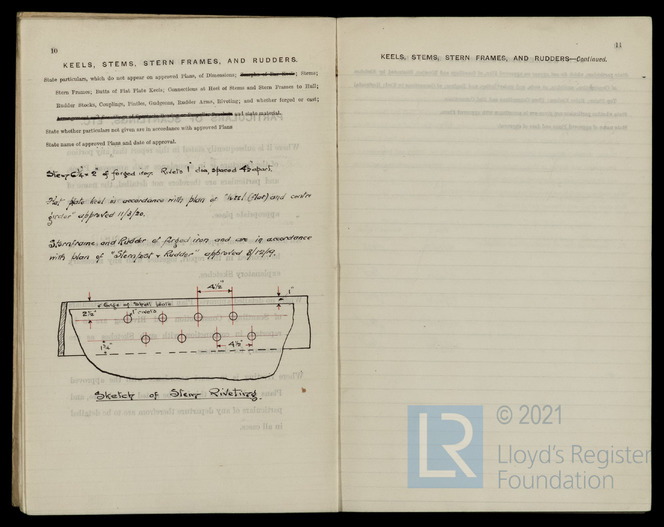 10
KEELS, STEMS, STERN FRAMES, AND RUDDERS.
State particulars, which do not appear on approved Plans, of Dimensions; Stems;
Stern Frames; Butts of Flat Plate Keels; Connections at Heel of Stems and Stern Frames to Hull;
Rudder Stocks, Couplings, Pintles, Gudgeons, Rudder Arms, Riveting; and whether forged or cast;
and state material.
State whether particulars not given are in accordance with approved Plans
State name of approved Plans and date of approval.
Stem 2" of forged iron Rivets 1" dia, spaced apart.
plate keel in accordance with plan of (flat) and
girder" approved 11/3/20.
Sternframe and Rudder of forged iron and are in accordance
with plan of "Sternpost & Rudder" approved 8/12/19.
4½"
1"
Edge of Shell plate
2½"
1" rivets
4½"
Sketch of Stem Riveting.
11
KEELS, STEMS, STERN FRAMES, AND RUDDERS—Continued.
© 2021
LR
Lloyd's Register
Foundation